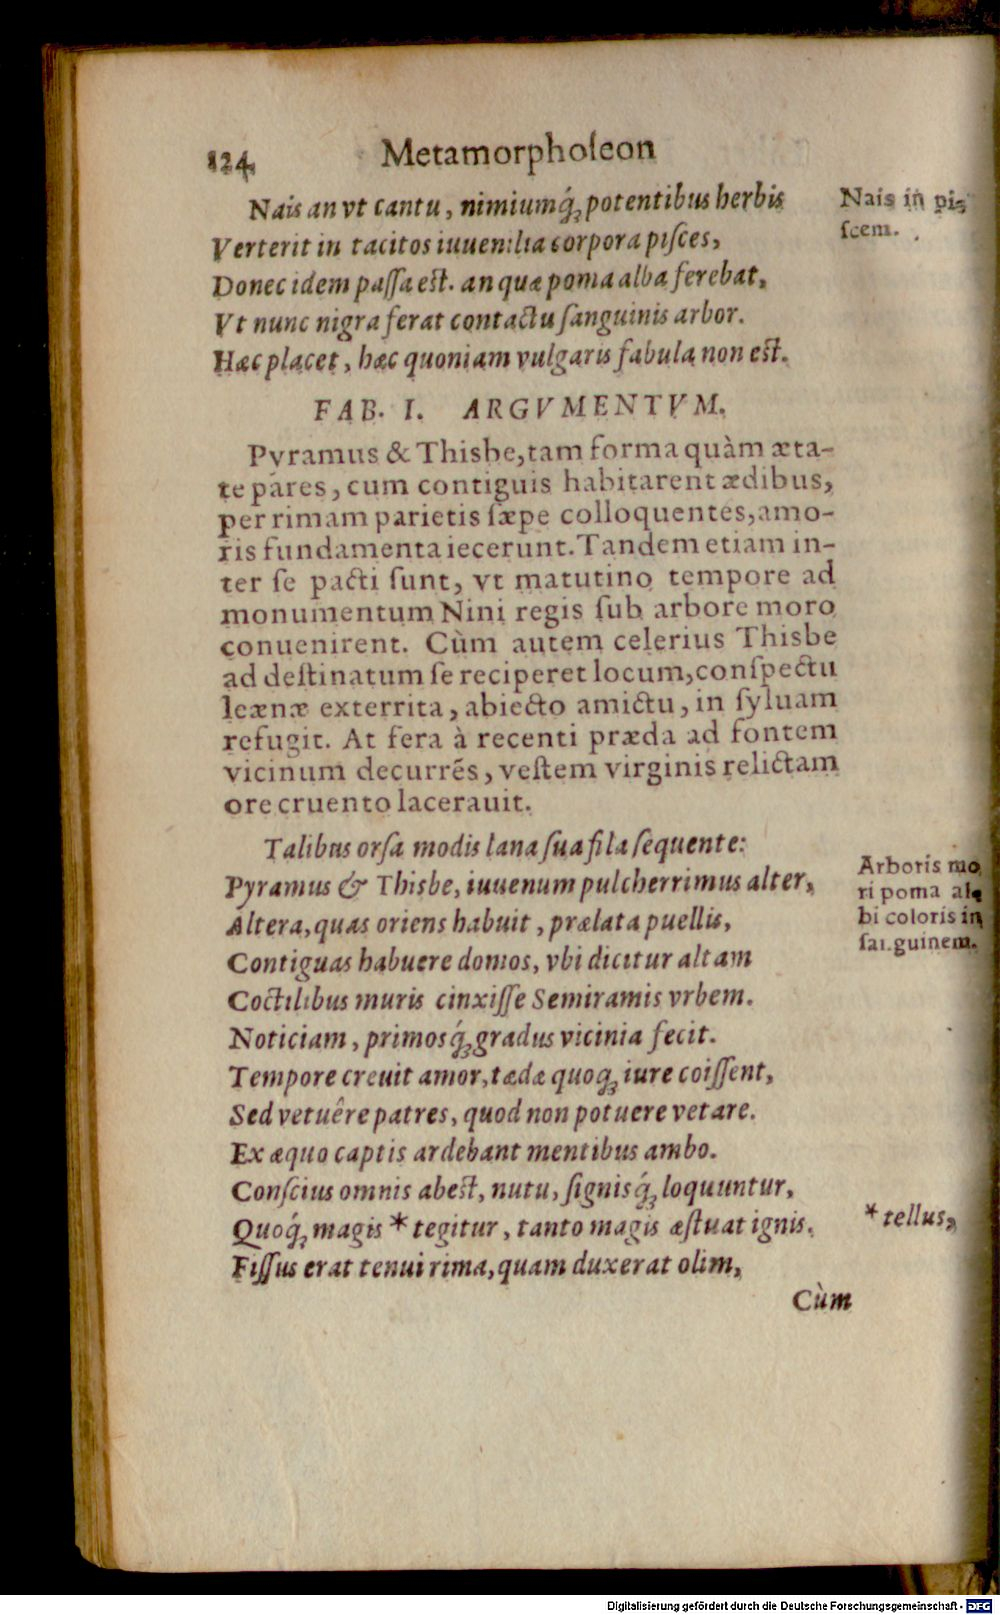 124 Metamorphoſeon
Nais an vt cantu, nimiumq́; potentibus herbis
Nais in pi-
Verterit in tacitos iuuenilia corpora piſces,
ſcem.
Donec idem paſſa eſt. an quæ poma alba ferebat,
Vt nunc nigra ferat contactu ſanguinis arbor.
Hæc placet, hæc quoniam vulgaris fabula non eſt.
FAB. I. ARGVMENTVM.
Pyramus & Thisbe, tam forma quàm æta-
te pares, cum contiguis habitarent ædibus,
per rimam parietis ſæpe colloquentes, amo-
ris fundamenta iecerunt. Tandem etiam in-
ter ſe pacti ſunt, vt matutino tempore ad
monumentum Nini regis ſub arbore moro
conuenirent. Cùm autem celerius Thisbe
ad deſtinatum ſe reciperet locum, conſpectu
leænæ exterrita, abiecto amictu, in ſyluam
refugit. At fera à recenti præda ad fontem
vicinum decurrẽs, veſtem virginis relictam
ore cruento lacerauit.
Talibus orſa modis lana ſua fila ſequente:
Pyramus & Thisbe, iuuenum pulcherrimus alter,
Altera, quas oriens habuit, prælata puellis,
Contiguas habuere domos, vbi dicitur altam
Coctilibus muris cinxiſſe Semiramis vrbem.
Arboris mo
ri poma al-
bi coloris in
ſanguinem.
Noticiam, primosq́; gradus vicinia fecit.
Tempore creuit amor, tædæ quoq; iure coiſſent,
Sed vetuêre patres, quod non potuere vetare.
Ex æquo captis ardebant mentibus ambo.
Conſcius omnis abeſt, nutu, ſignisq́; loquuntur,
Quoq́; magis * tegitur, tanto magis æſtuat ignis.
* tellus,
Fiſſus erat tenui rima, quam duxerat olim,
Cùm
Digitalisierung gefördert durch die Deutsche Forschungsgemeinschaft - DFG